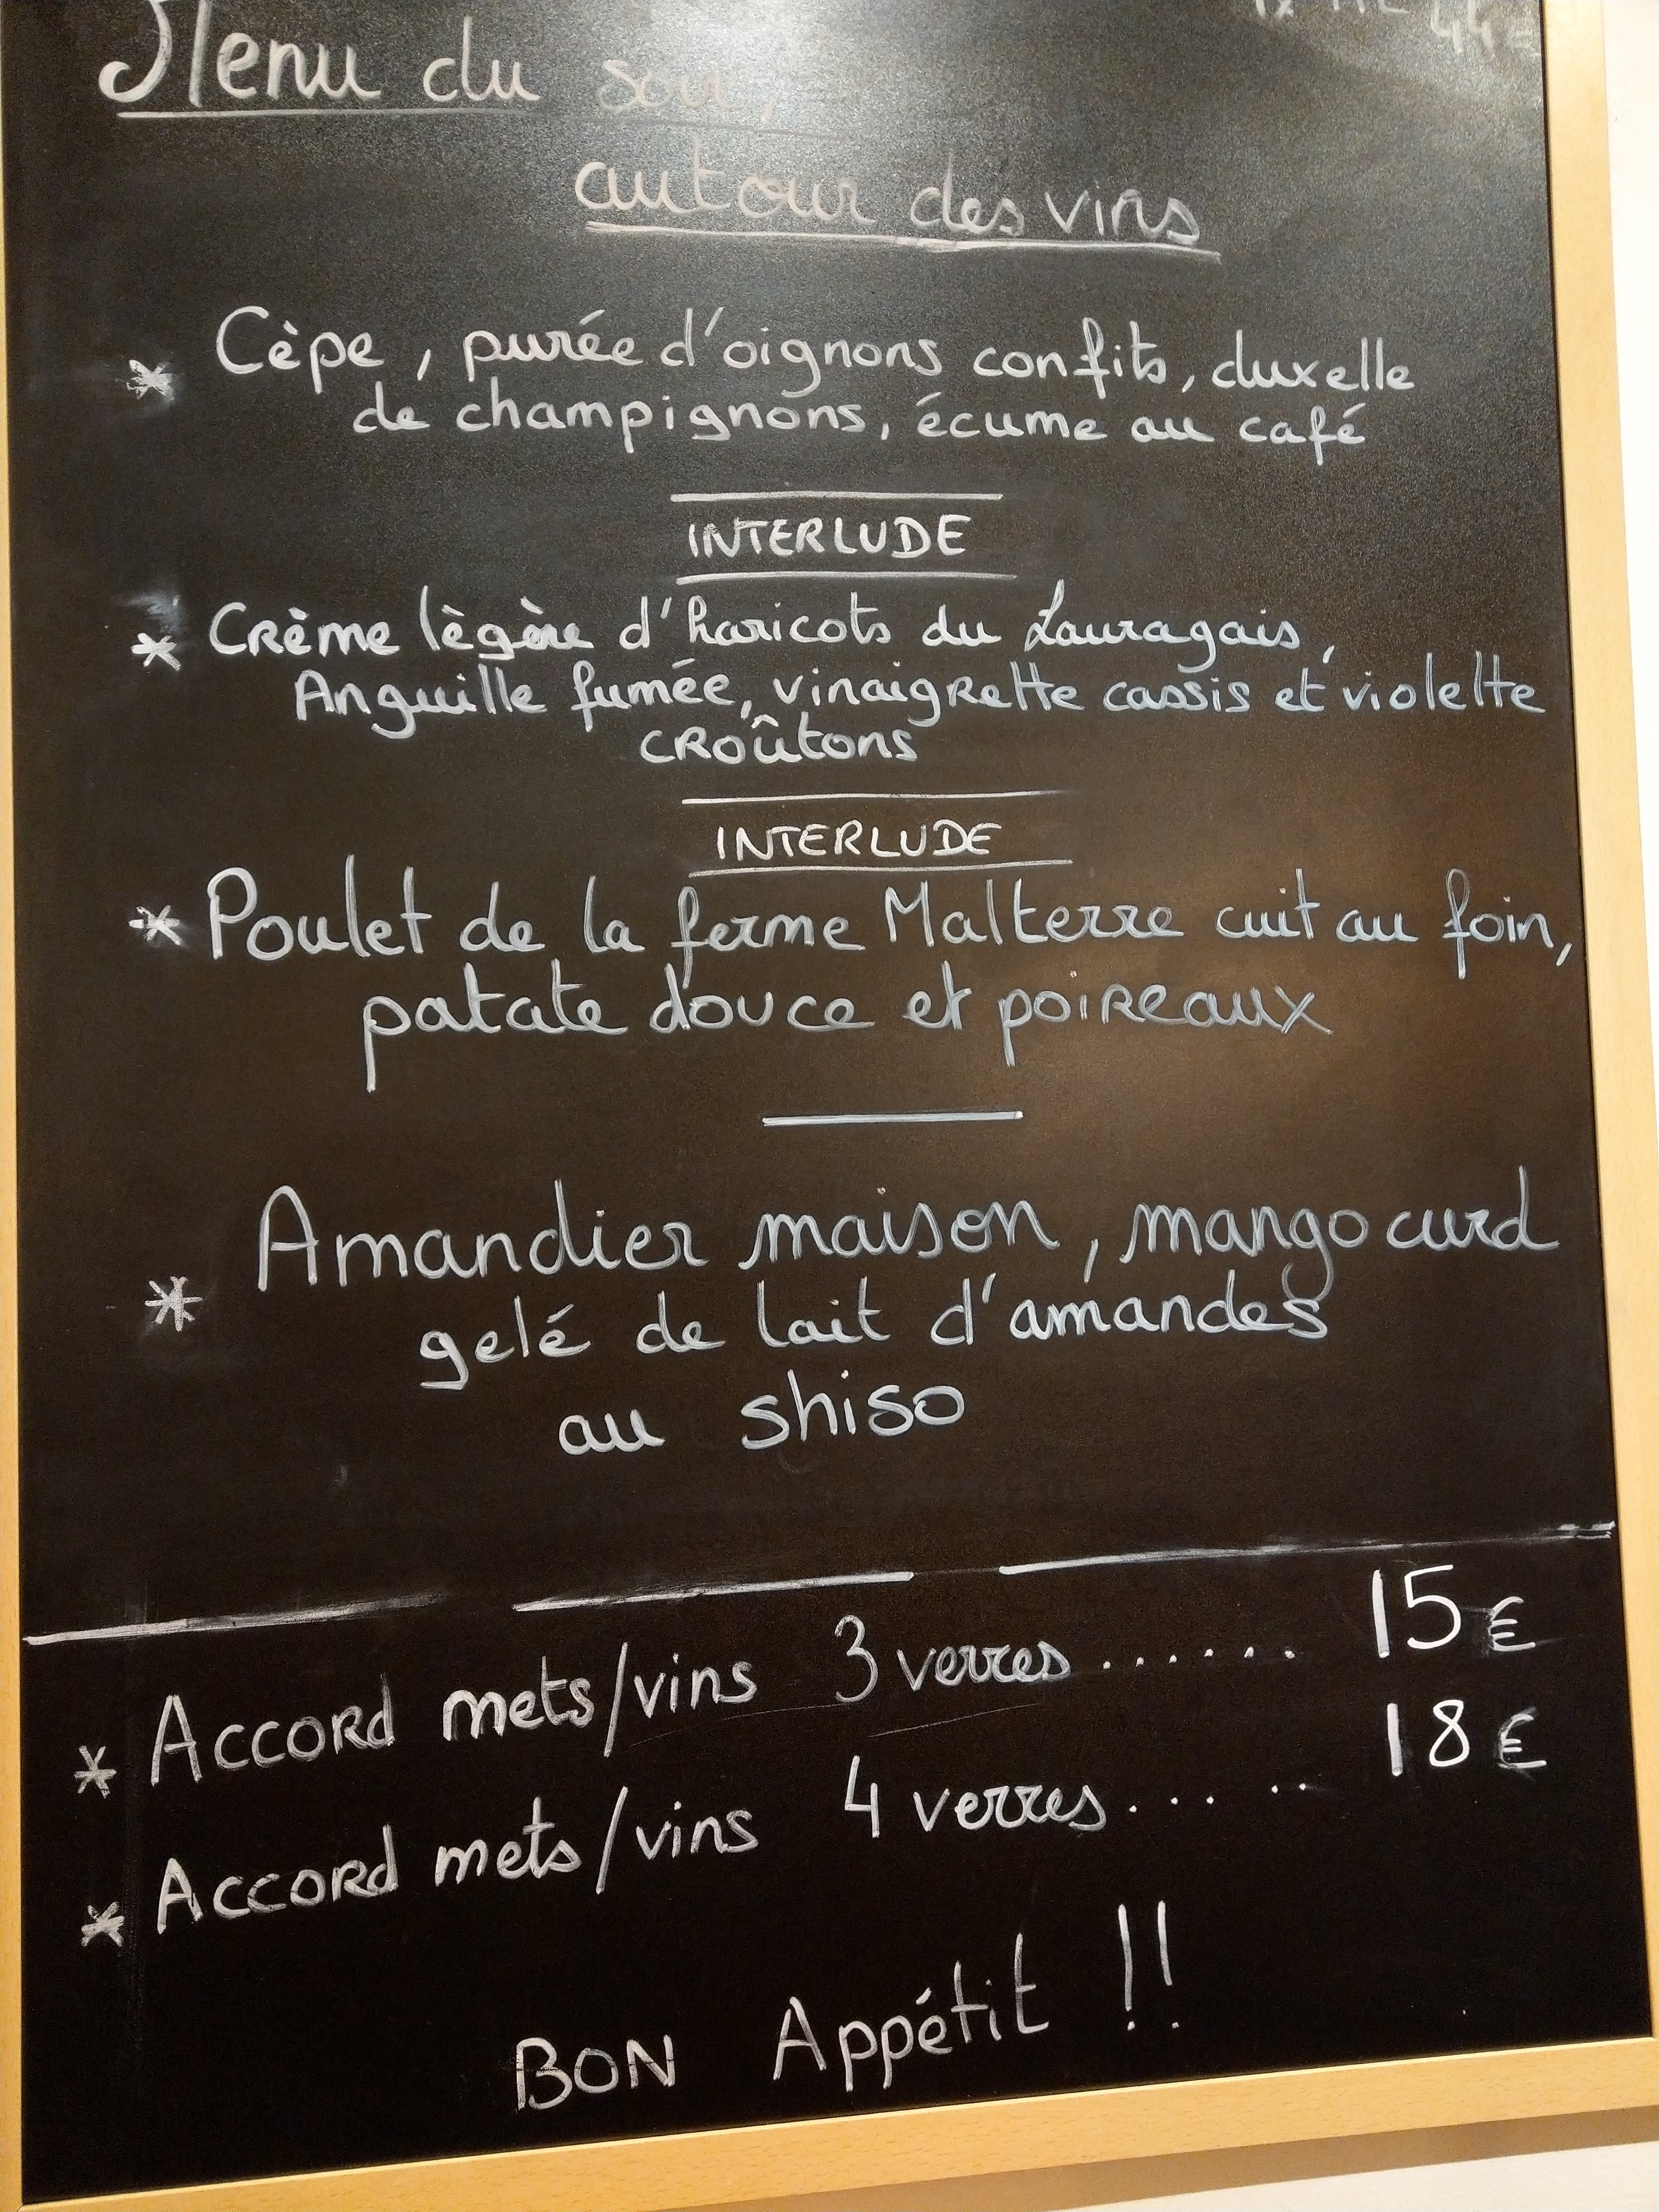 Menu du soir,
autour des vins
* Cèpe, purée d'oignons confits, duxelle
de champignons, écume au café
INTERLUDE
* Crème lègère d'haricots du Lauragais,
Anguille fumée, vinaigrette cassis et violette
croûtons
INTERLUDE
* Poulet de la ferme Malterre cuit au foin,
patate douce et poireaux
* Amandier maison, mango curd
gelé de lait d'amandes
au shiso
* Accord mets/vins 3 verres ...... 15€
* Accord mets/vins 4 verres ..... 18€
BON Appétit !!